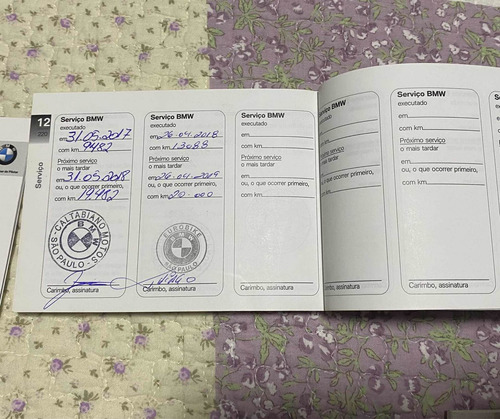 12
220
Serviço
Serviço BMW
executado
em 31.05.2017
com km 9482
Próximo serviço
o mais tardar
em 31.05.2018
ou, o que ocorrer primeiro,
com km 19.482
CALTABIANO MOTOS
BMW
SÃO PAULO
Carimbo, assinatura
Serviço BMW
executado
em 26.04.2018
com km 13088
Próximo serviço
o mais tardar
em 26.04.2019
ou, o que ocorrer primeiro,
com km 20.000
EUROBIKE
SÃO PAULO
Carimbo, assinatura
Serviço BMW
executado
em
com km
Próximo serviço
o mais tardar
em
ou, o que ocorrer primeiro,
com km
Carimbo, assinatura
Serviço BMW
executado
em
com km
Próximo serviço
o mais tardar
em
ou, o que ocorrer primeiro,
com km
Carimbo, assinatura
Serviço BMW
executado
em
com km
Próximo serviço
o mais tardar
em
ou, o que ocorrer primeiro,
com km
Carimbo, assinatura